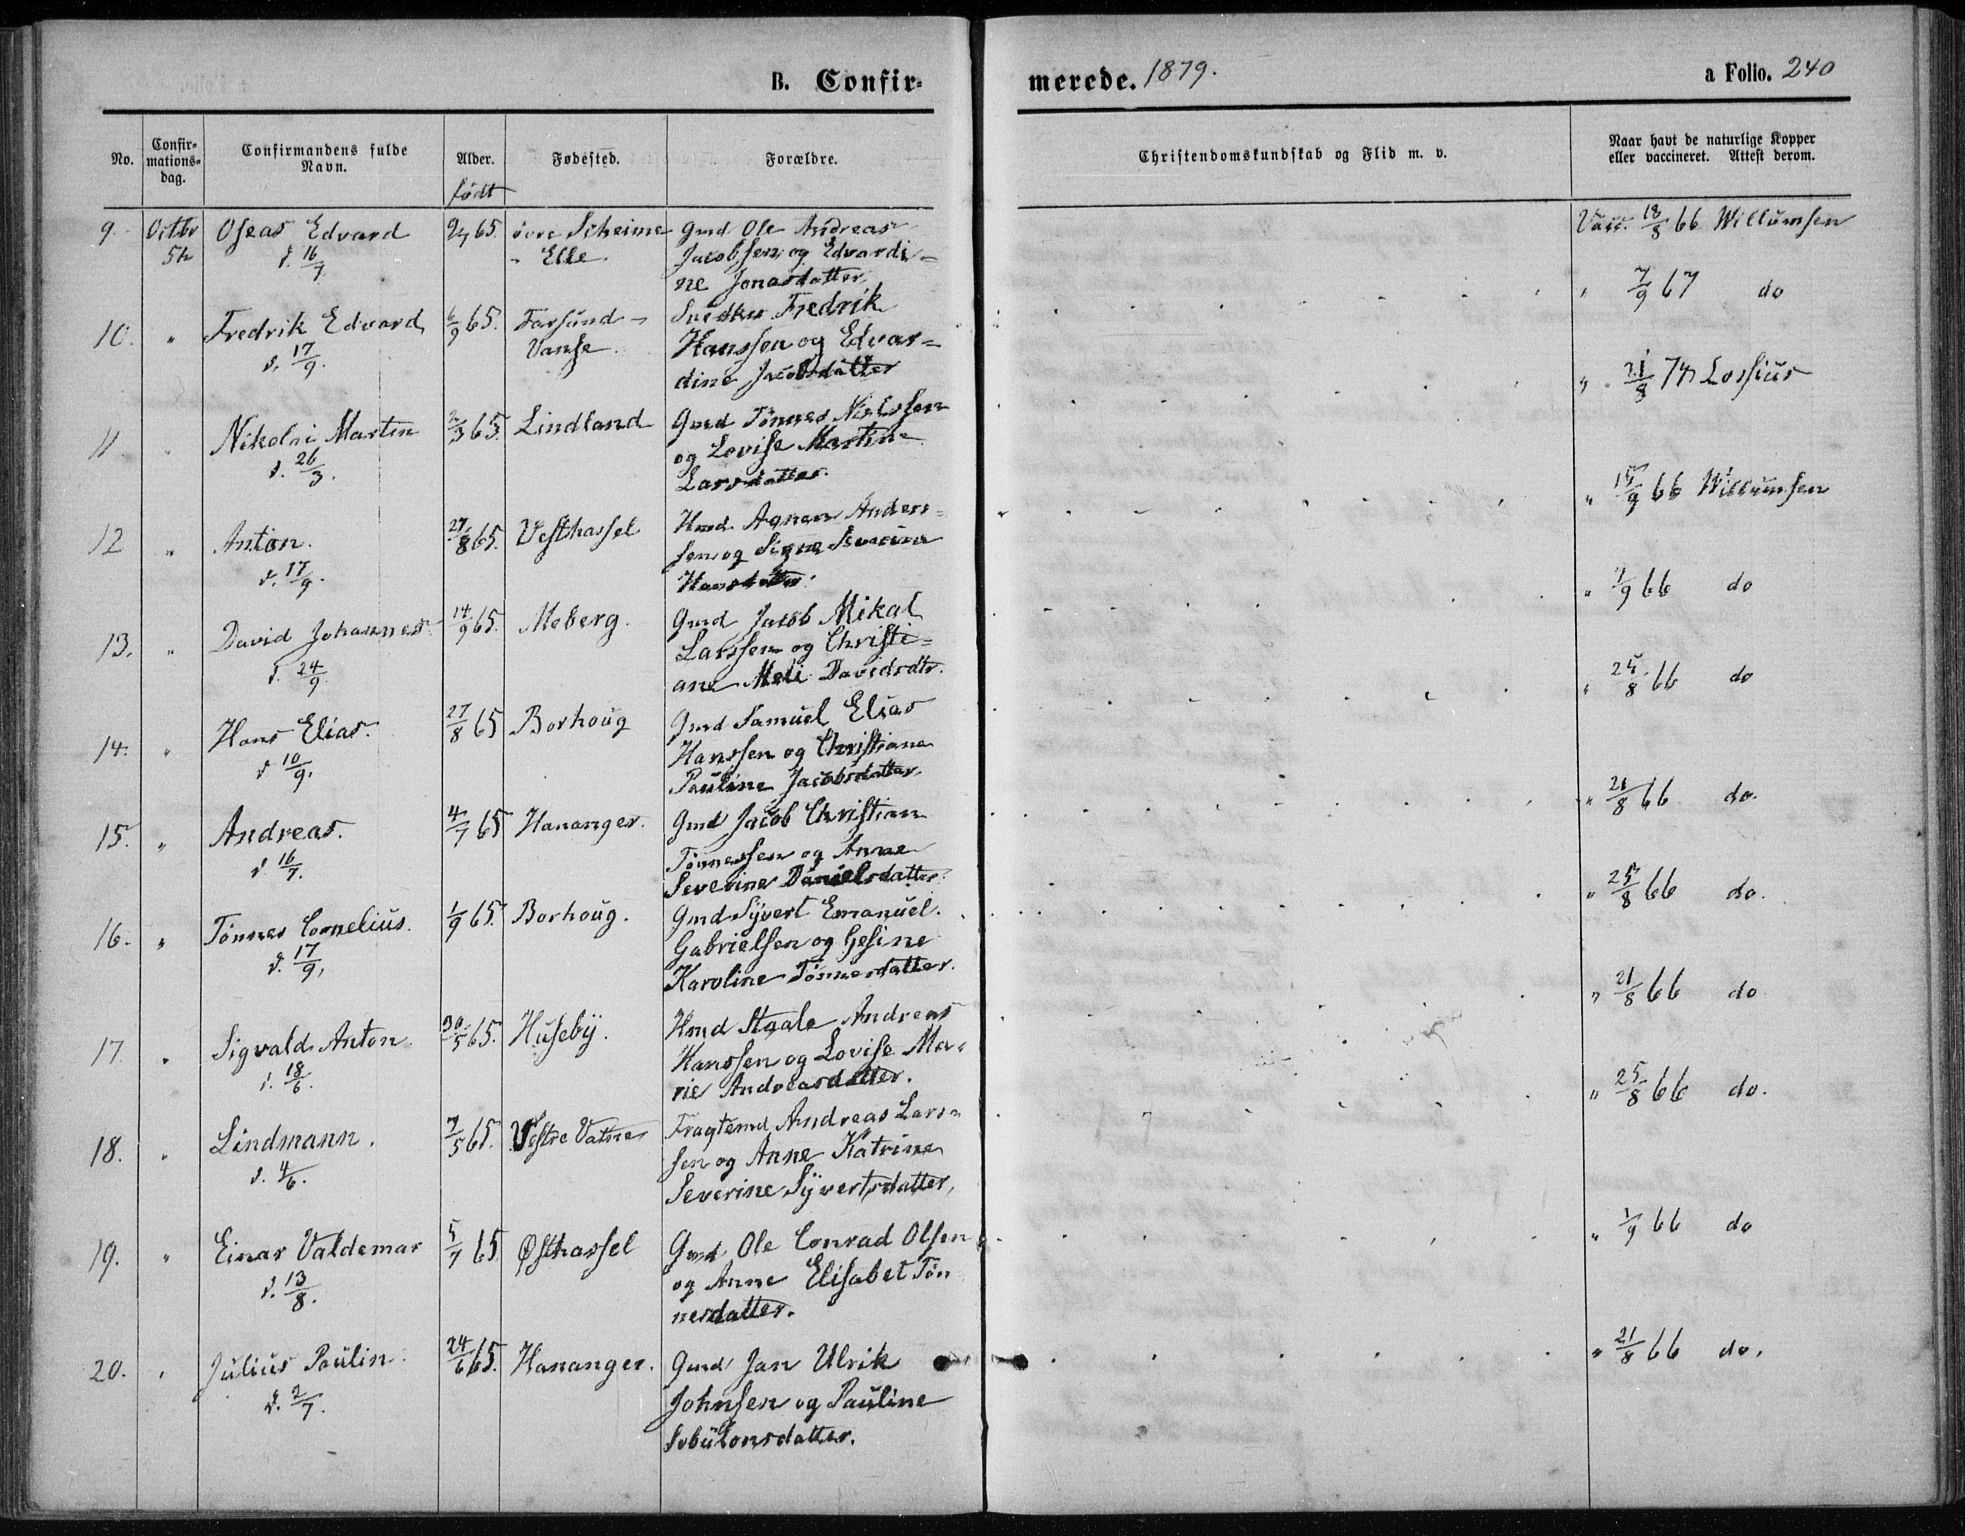 B. Confir-
merede. 1879.
a Folio. 240
No.
Confir-
mations-
dag.
Confirmandens fulde
Navn.
Alder.
født
Fødested.
Forældre.
Christendomskundskab og Flid m. v.
Naar havt de naturlige Kopper
eller vaccineret. Attest derom.
9. Octbr Oseas Edvard 2/7 65. øvre Skeime Gmd Ole Andreas Vacc. 18/8 66 Willumsen
5te d. 16/7 - Elle Jacobsen og Edvardi=
ne Jonasdatter
10. " Fredrik Edvard 6/9 65. Farsund - Snedker Fredrik " 7/9 67 do
d. 17/9. Vanse. Hanssen og Edvar=
dine Jacobsdatter
11 " Nikolai Martin 2/3 65. Lindland Gmd Tønnes Nielssen " 21/8 77 Lossius
d. 26/3. og Lovise Martine
Larsdatter.
12 " Anton. 27/8 65. Vesthassel Hmd Agnen Anders- " 15/9 66 Willumsen
d. 17/9. sen og Signe Severine
Hansdatter.
13. " David Johannes. 14/9 65. Meberg. Gmd Jacob Mikal " 1/9 66 do
d. 24/9. Larssen og Christi=
ane Meli Davidsdtr.
14. " Hans Elias. 27/8 65 Borhoug Gmd Samuel Elias " 25/8 66 do
d 10/9. Hanssen og Christiane
Pauline Jacobsdatter.
15. " Andreas. 4/7 65 Hananger. Gmd Jacob Christian " 21/8 66 do.
d 16/7. Tønnessen og Anne
Severine Danielsdatter.
16. " Tønnes Cornelius. 1/9 65. Borhoug. Gmd Syvert Emanuel " 25/8 66 do.
d. 17/9, Gabrielsen og Gesine
Karoline Tønnesdatter.
17. " Sigvald Anton. 30/5 65. Huseby. Hmd Staale Andreas " 21/8 66 do
d. 18/6. Hanssen og Lovise Ma-
rie Andreasdatter.
18. " Lindmann. 7/5 65. Vestre Vatne Fragtemd Andreas Lars- " 25/8 66 do.
d. 4/6. sen og Anne Katrine
Severine Syvertsdatter,
19. " Einar Valdemar 5/7 65 Østhassel Gmd. Ole Conrad Olsen " 1/9 66 do
d. 13/8. og Anne Elisabet Tøn
nesdatter.
20. " Julius Paulin. 24/6 65. Hananger. Gmd Jan Ulrik " 21/8 66 do.
d. 2/7. Johnsen og Pauline
Sebulonsdatter.